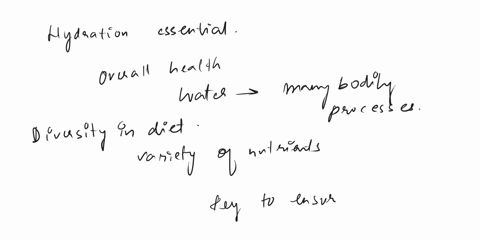 Hydration essential.
Overall health
Water → many bodily
processes.
Diversity in diet.
variety of nutrients
key to ensur